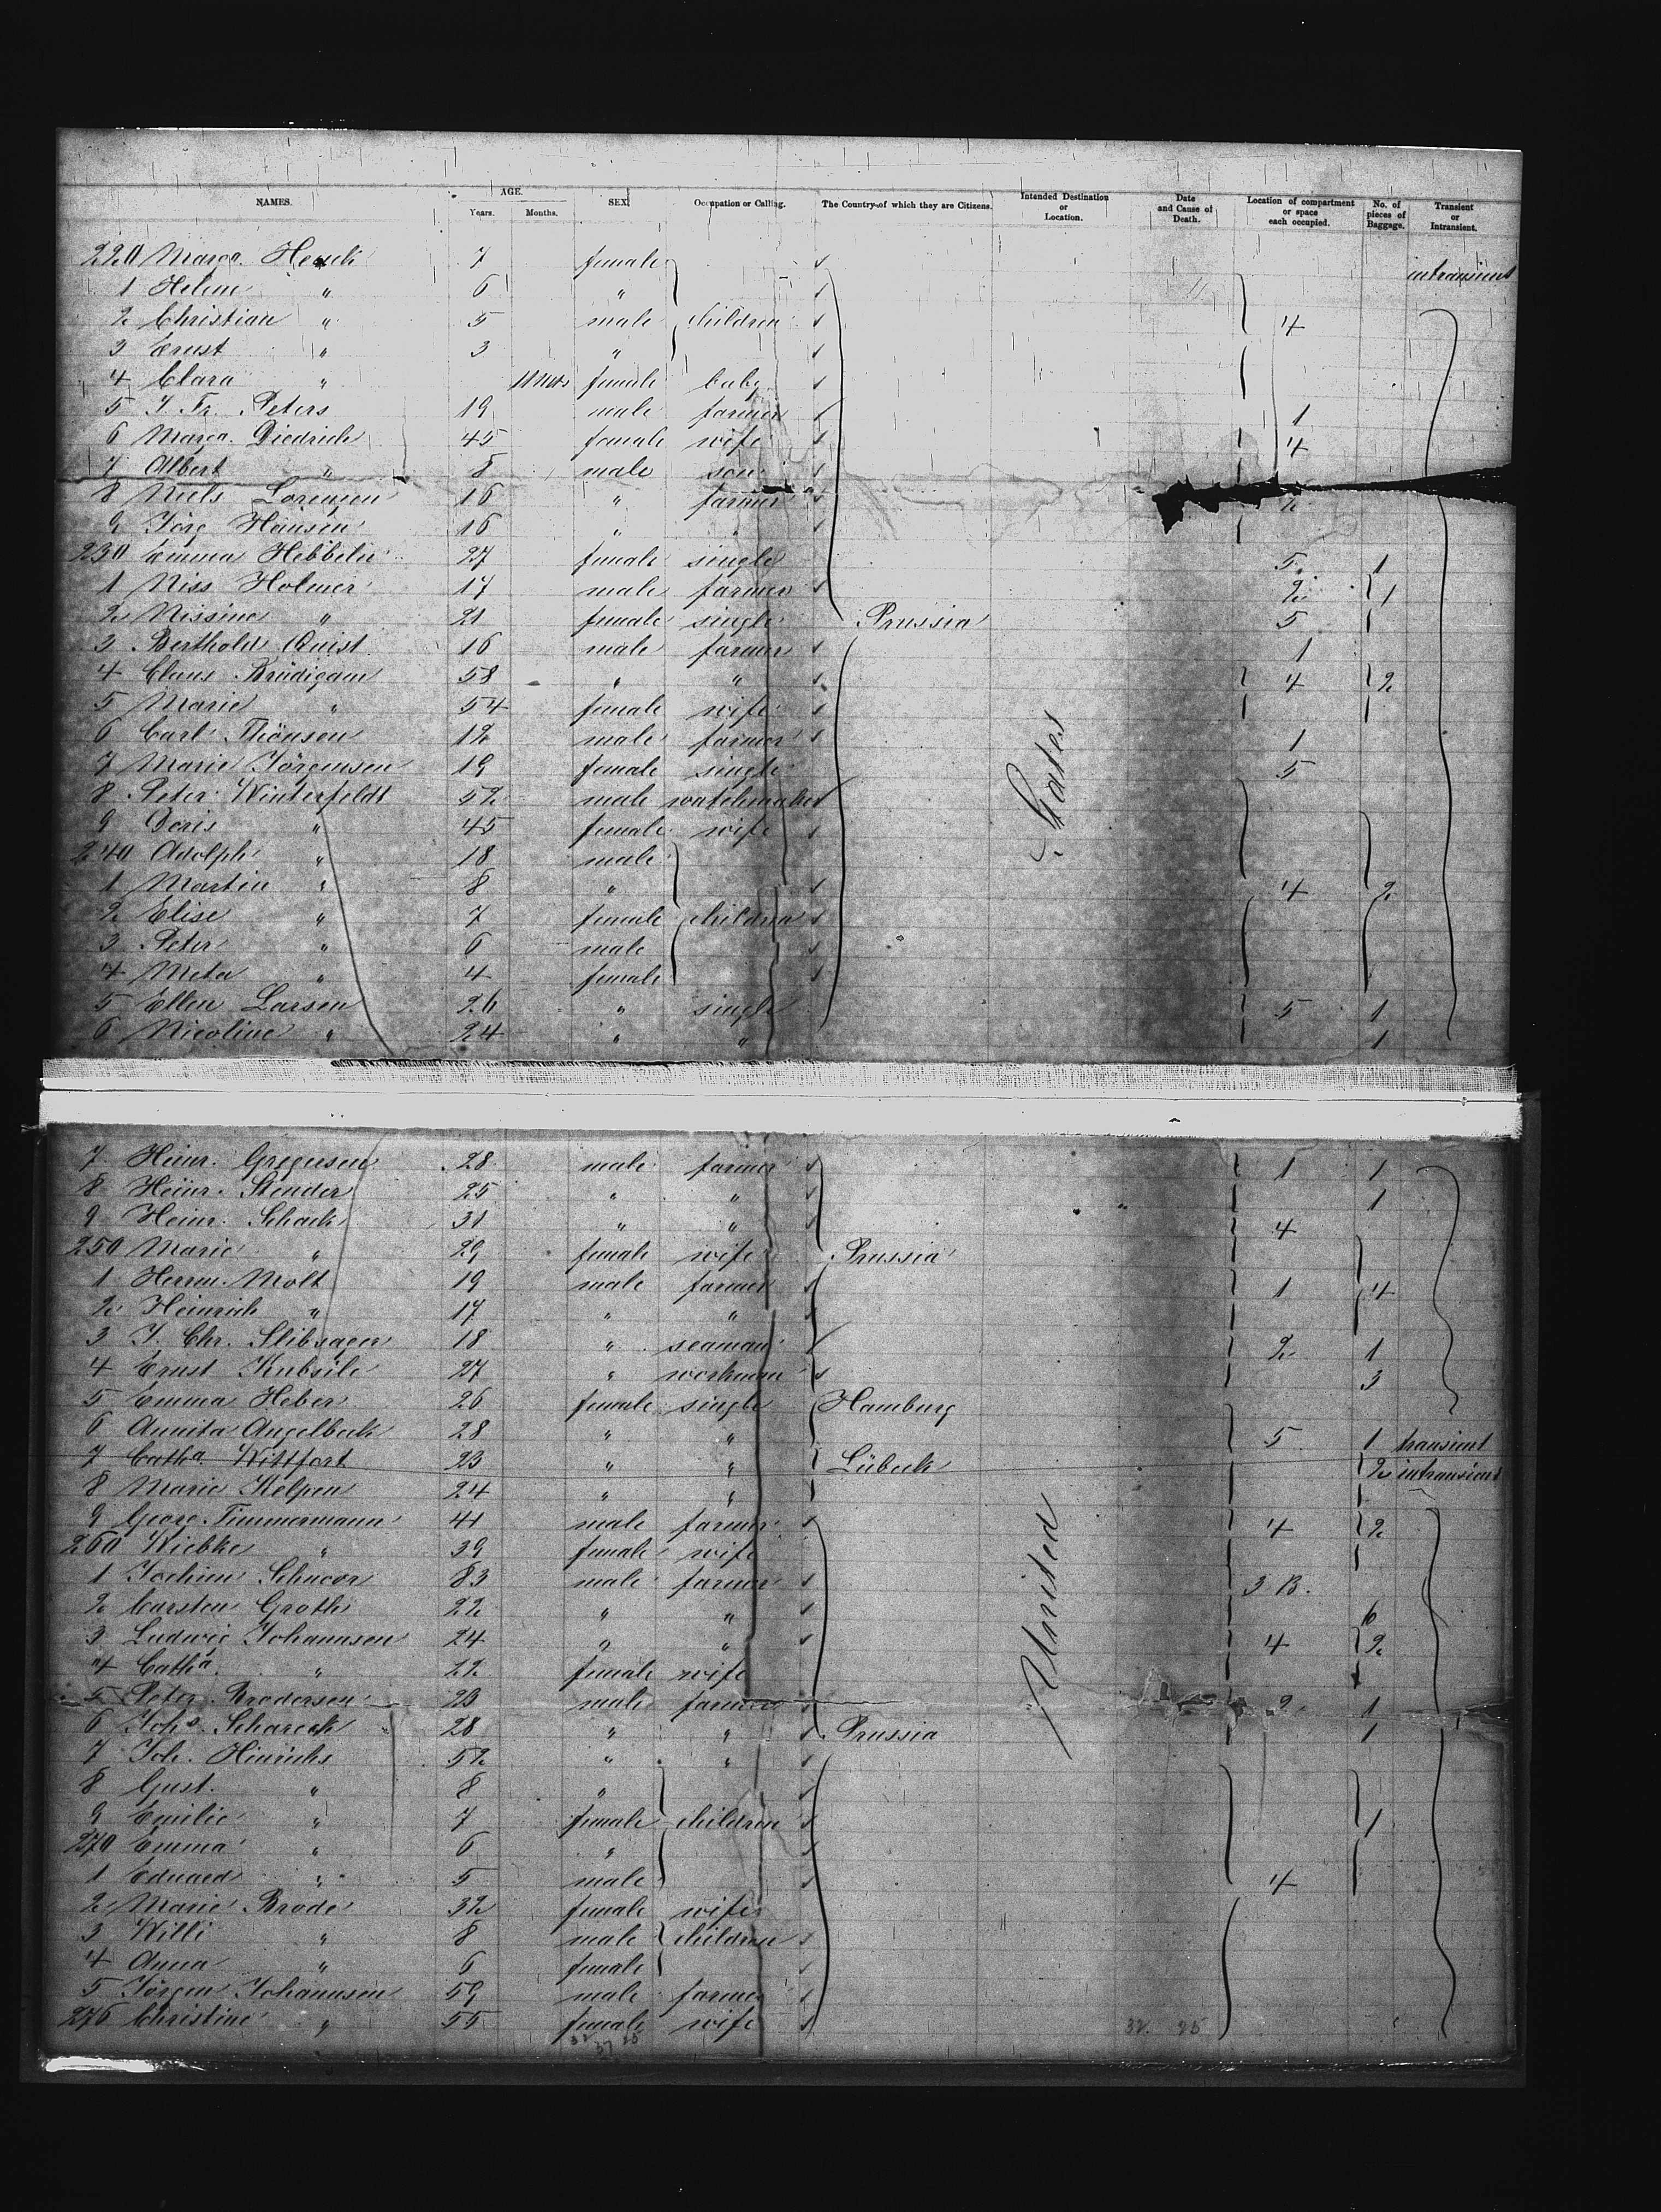 NAMES. AGE. Years. Months. SEX Occupation or Calling. The Country of which they are Citizens. Intended Destination or Location. Date and Cause of Death. Location of compartment or space each occupied. No. of pieces of Baggage. Transient or Intransient.
220 Marga. 7 female intransient
1 Helene " 6 "
2 Christian " 5 male children 4
3 Ernst " 3 "
4 Clara " 11 Mos female baby
5 J. Fr. Peters 19 male farmer 1
6 Marga. Diedrich 45 female wife 4
7 Albert " 8 male son
8 Niels Lorenzen 16 " farmer 2
9 Jörg Hansen 16 " "
230 Emma Hebbeln 27 female single 5 1
1 Niss Holmer 17 male farmer 2 1
2 Nissine " 21 female single Prussia 5
3 Berthold Quist 16 male farmer 1
4 Claus Brüdigam 58 " " 4 2
5 Marie " 54 female wife
6 Carl Thönsen 12 male farmer 1
7 Marie Jörgensen 19 female single 5
8 Peter Winterfeldt 52 male watchmaker
9 Doris " 45 female wife States
240 Adolph " 18 male
1 Martin " 8 " 4 2
2 Elise " 7 female children
3 Peter " 6 male
4 Meta " 4 female
5 Ellen Larsen 26 " single 5 1
6 Nicoline " 24 " " 1
7 Heinr. Gregersen 28 male farmer 1 1
8 Heinr. Stender 25 " " 1
9 Heinr. Schack 31 " " 4
250 Marie " 29 female wife Prussia
1 Herm. Molt 19 male farmer 1 4
2 Heinrich " 17 " "
3 J. Chr. Slibsager 18 " seaman 2 1
4 Ernst 27 " workman 3
5 Emma Heber 26 female single Hamburg
6 Annita Angelbeck 28 " " 5 1 transient
7 Catha. Wittfort 23 " " Lübeck 2 intransient
8 Marie Kelpen 24 " "
9 Georg Timmermann 41 male farmer 4 2
260 Wiebke " 39 female wife United
1 Jochim 83 male farmer 3 B.
2 Carsten Groth 22 " " 6
3 Ludwig Johannsen 24 " " 4 2
4 Catha. " 22 female wife
5 Peter Brodersen 23 male farmer 2 1
6 Johs. 28 " " Prussia 1
7 Joh. Hinrichs 52 " "
8 Gust. " 8 "
9 Emilie " 7 female children 1
270 Emma " 6 "
1 Eduard " 5 male 4
2 Marie Brode 32 female wife
3 Willi " 8 male children
4 Anna " 6 female
5 Jörgen Johannsen 59 male farmer
276 Christine " 55 female wife
32 37 25 32. 25